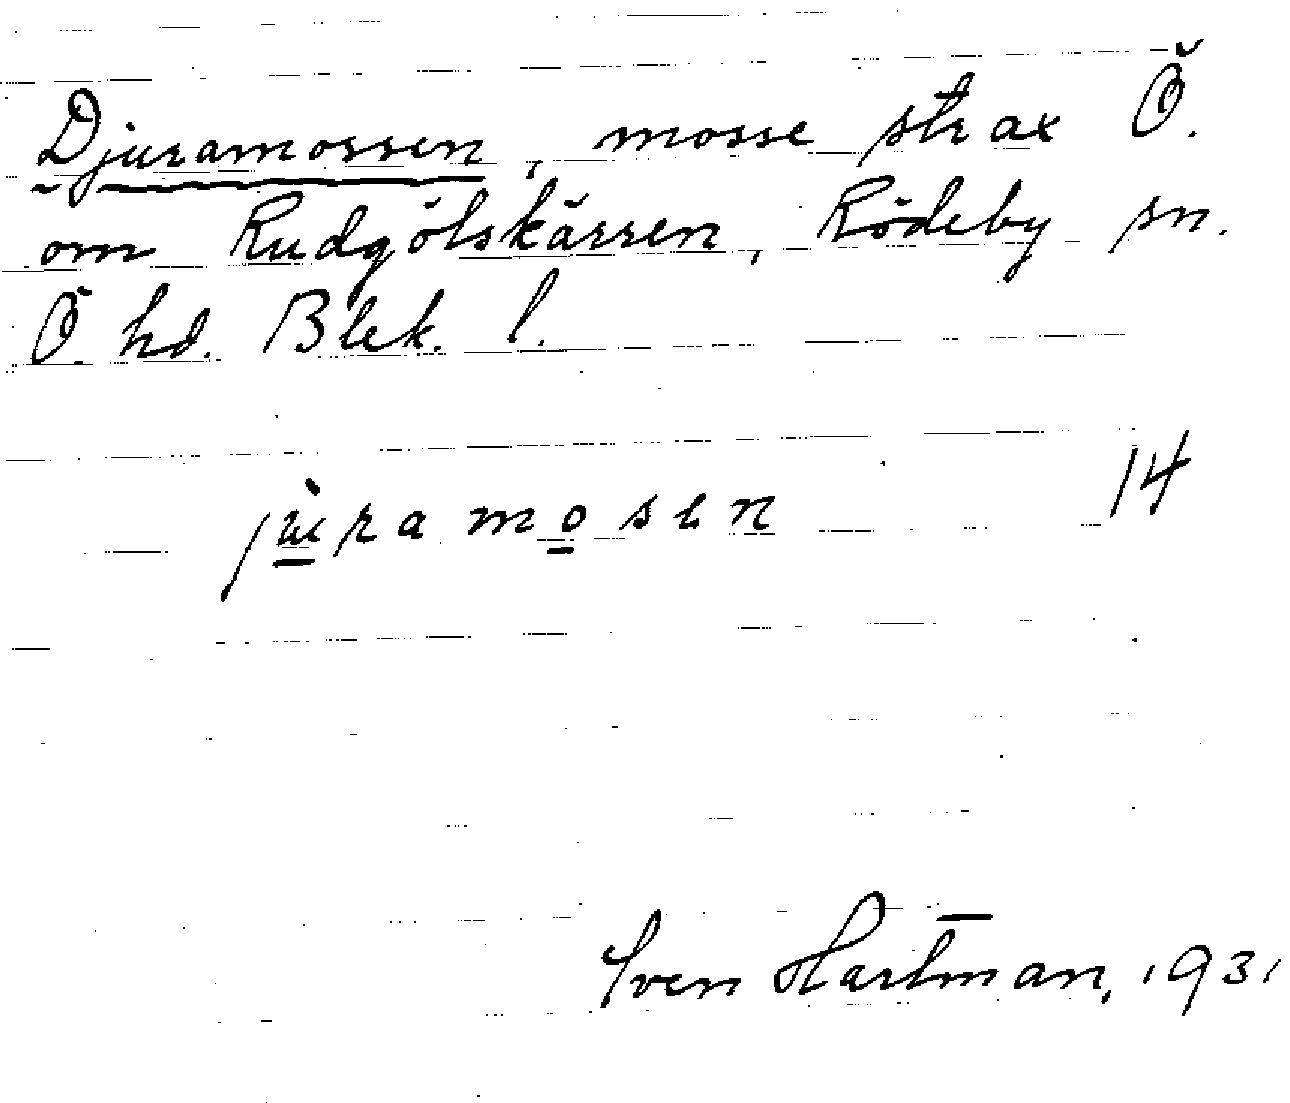 Djuramossen, mosse strax Ö.
om Rudgölskärren, Rödeby sn.
Ö. hd. Blek. l.
jùramosen 14
Sven Hartman, 1931